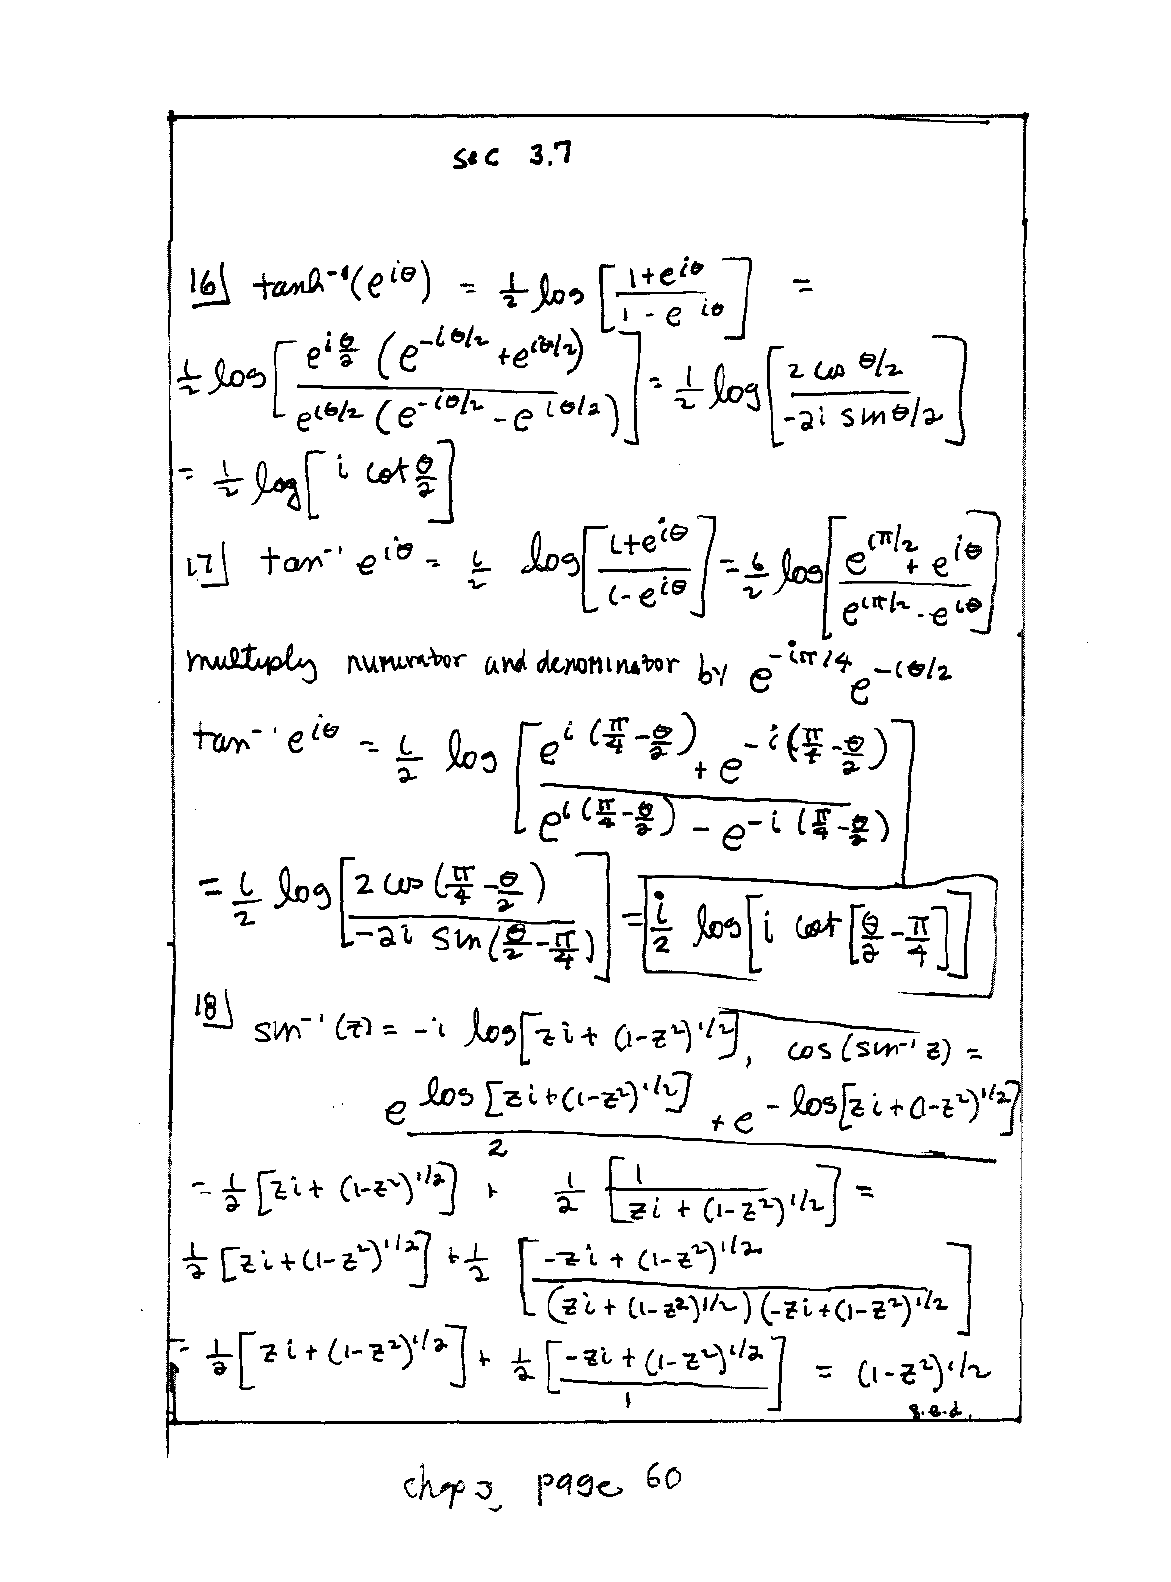 sec 3.7
16] tanh⁻¹(e^{iθ}) = 1/2 log [ (1+e^{iθ}) / (1-e^{iθ}) ] =
1/2 log [ e^{iθ/2} (e^{-iθ/2} + e^{iθ/2}) / e^{iθ/2} (e^{-iθ/2} - e^{iθ/2}) ] = 1/2 log [ 2 cos θ/2 / -2i sin θ/2 ]
= 1/2 log [ i cot θ/2 ]
17] tan⁻¹ e^{iθ} = i/2 log [ (i+e^{iθ}) / (i-e^{iθ}) ] = i/2 log [ (e^{iπ/2} + e^{iθ}) / (e^{iπ/2} - e^{iθ}) ]
multiply numerator and denominator by e^{-iπ/4} e^{-iθ/2}
tan⁻¹ e^{iθ} = i/2 log [ (e^{i(π/4 - θ/2)} + e^{-i(π/4 - θ/2)}) / (e^{i(π/4 - θ/2)} - e^{-i(π/4 - θ/2)}) ]
= i/2 log [ 2 cos (π/4 - θ/2) / -2i sin (θ/2 - π/4) ] = i/2 log [ i cot [ θ/2 - π/4 ] ]
18] sin⁻¹(z) = -i log [ zi + (1-z²)^{1/2} ], cos (sin⁻¹ z) =
( e^{log [zi+(1-z²)^{1/2}]} + e^{-log [zi+(1-z²)^{1/2}]} ) / 2
= 1/2 [ zi + (1-z²)^{1/2} ] + 1/2 [ 1 / (zi + (1-z²)^{1/2}) ] =
1/2 [ zi + (1-z²)^{1/2} ] + 1/2 [ (-zi + (1-z²)^{1/2}) / (zi + (1-z²)^{1/2}) (-zi + (1-z²)^{1/2} ]
= 1/2 [ zi + (1-z²)^{1/2} ] + 1/2 [ (-zi + (1-z²)^{1/2}) / 1 ] = (1-z²)^{1/2}
q.e.d.
chap 3, page 60